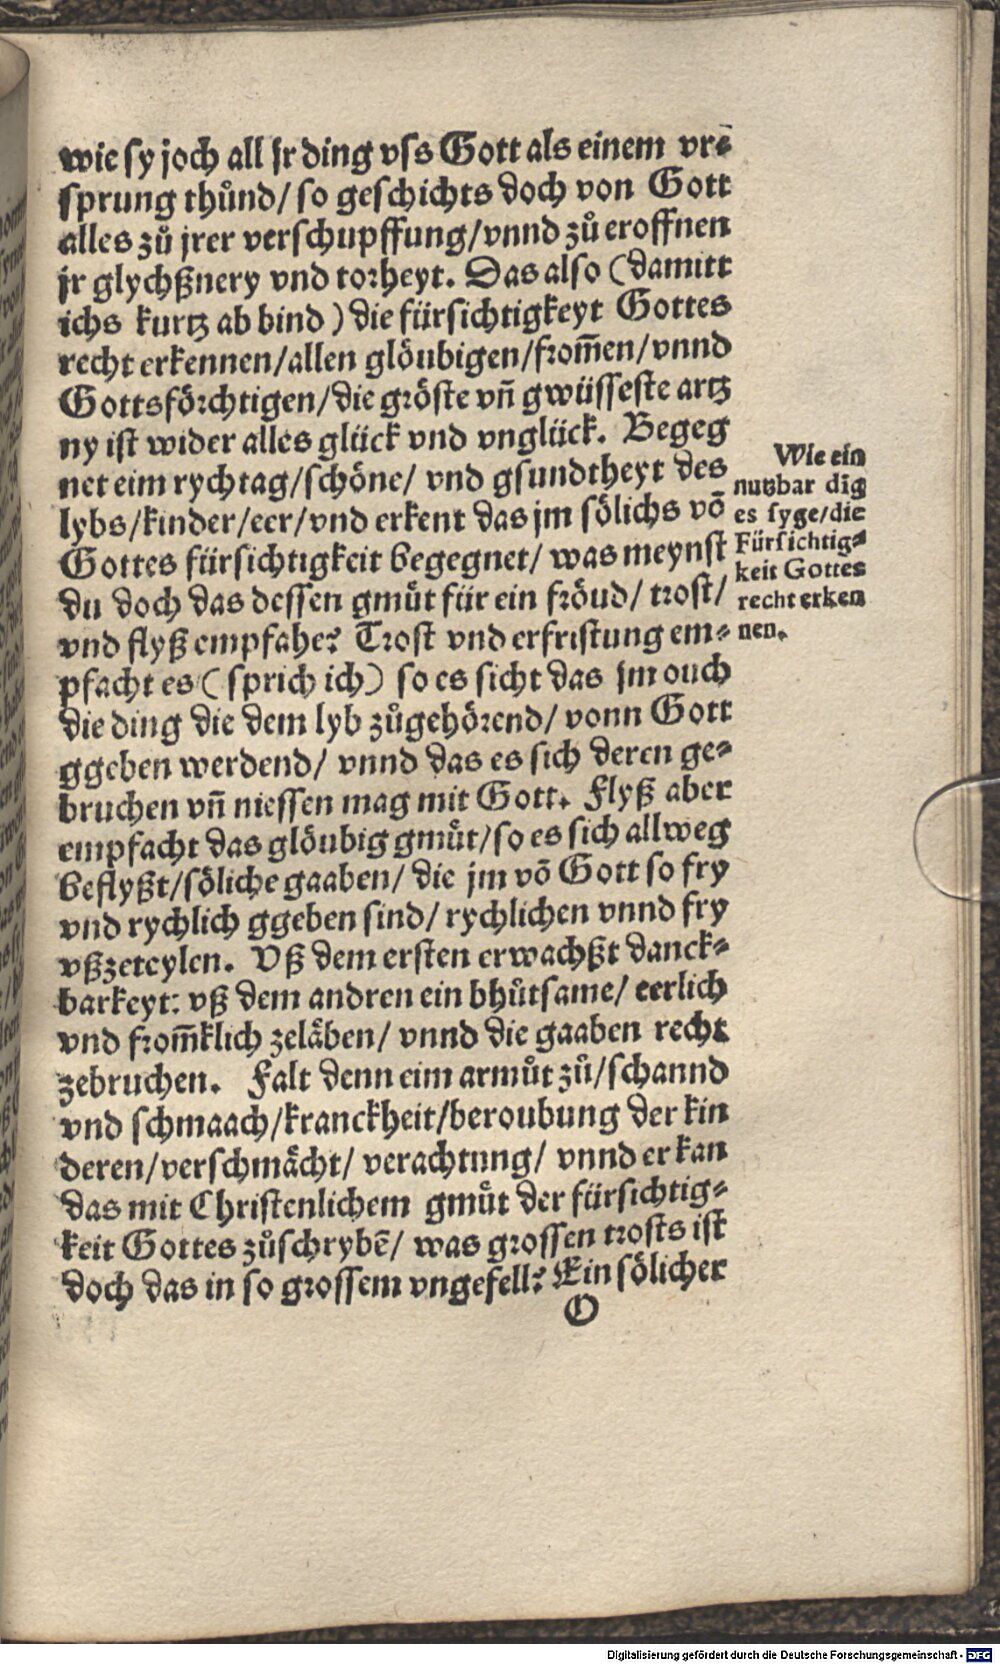 wie sy joch all jr ding vss Gott als einem vr⸗
sprung thuͦnd/ so geschichts doch von Gott
alles zuͦ jrer verschupffung/vnnd zuͦ eroffnen
jr glychßnery vnd torheyt. Das also (damitt
ichs kurtz ab bind) die fürsichtigkeyt Gottes
recht erkennen/allen glöubigen/from̄en/vnnd
Gottsförchtigen/die gröste vn̄ gwüsseste artz
ny ist wider alles glück vnd vnglück. Begeg
net eim rychtag/schöne/ vnd gsundtheyt des
lybs/kinder/eer/vnd erkent das jm sölichs vō
Gottes fürsichtigkeit begegnet/ was meynst
du doch das dessen gmuͤt für ein fröud/ trost/
vnd flyß empfahe? Trost vnd erfristung em⸗
pfacht es (sprich ich) so es sicht das jm ouch
die ding die dem lyb zuͦgehörend/ vonn Gott
ggeben werdend/ vnnd das es sich deren ge⸗
bruchen vn̄ niessen mag mit Gott. Flyß aber
empfacht das glöubig gmuͤt/so es sich allweg
beflyßt/söliche gaaben/ die jm vō Gott so fry
vnd rychlich ggeben sind/ rychlichen vnnd fry
vßzeteylen. Vß dem ersten erwachßt danck⸗
barkeyt: vß dem andren ein bhuͤtsame/ eerlich
vnd from̄klich zeläben/ vnnd die gaaben recht
zebruchen. Falt denn eim armuͤt zuͦ/schannd
vnd schmaach/kranckheit/beroubung der kin
deren/verschmächt/ verachtung/ vnnd er kan
das mit Christenlichem gmuͤt der fürsichtig⸗
keit Gottes zuͦschrybē/ was grossen trosts ist
doch das in so grossem vngefell? Ein sölicher
O
Wie ein
nutzbar dīg
es syge/die
Fürsichtig⸗
keit Gottes
recht erken
nen.
Digitalisierung gefördert durch die Deutsche Forschungsgemeinschaft - DFG